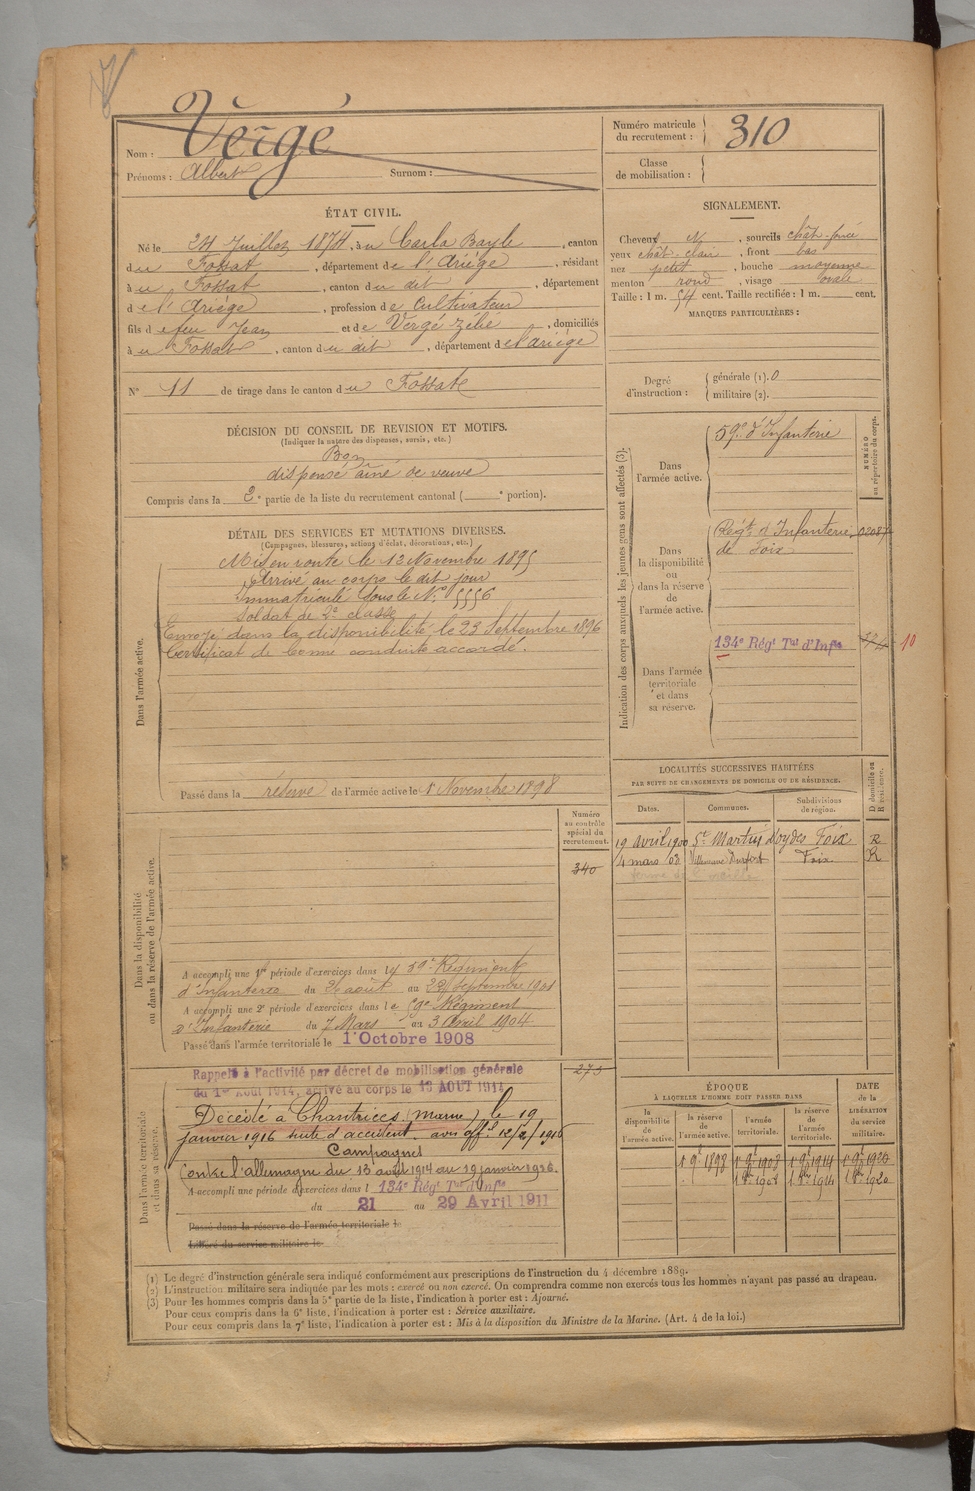 Vergé
Nom :
Prénoms : Albert Surnom :
Numéro matricule
du recrutement : 310
Classe
de mobilisation :
ÉTAT CIVIL.
Né le 24 Juillet 1874, à Carla Bayle, canton
du Fossat, département de l'Ariège, résidant
à u Fossat, canton du dit, département
de l'Ariège, profession de Cultivateur
fils de feu Jean et de Vergé Zélié, domiciliés
à u Fossat, canton du dit, département de l'ariège
N° 11 de tirage dans le canton du Fossat
SIGNALEMENT.
Cheveux N, sourcils chât.
yeux chât. clair, front bas
nez petit, bouche moyenne
menton rond, visage ovale
Taille : 1 m. 54 cent. Taille rectifiée : 1 m. cent.
MARQUES PARTICULIÈRES :
Degré
d'instruction :
générale (1). 0
militaire (2).
DÉCISION DU CONSEIL DE REVISION ET MOTIFS.
(Indiquer la nature des dispenses, sursis, etc.)
Bon
dispensé aîné de veuve
Compris dans la 2e partie de la liste du recrutement cantonal ( e portion).
DÉTAIL DES SERVICES ET MUTATIONS DIVERSES.
(Campagnes, blessures, actions d'éclat, décorations, etc.)
Dans l'armée active.
Mis en route le 12 Novembre 1895
Arrivé au corps le dit jour
Immatriculé sous le N° 5556
Soldat de 2e classe
Envoyé dans la disponibilité le 23 Septembre 1896
Certificat de bonne conduite accordé.
Passé dans la réserve de l'armée active le 1 Novembre 1898
Indication des corps auxquels les jeunes gens sont affectés (3).
NUMÉRO
au répertoire du corps.
Dans
l'armée active.
59e d'Infanterie
Dans
la disponibilité
ou
dans la réserve
de
l'armée active.
Régt d'Infanterie
de Foix
Dans l'armée
territoriale
et dans
sa réserve.
134e Régt Tal d'Infie
10
LOCALITÉS SUCCESSIVES HABITÉES
PAR SUITE DE CHANGEMENTS DE DOMICILE OU DE RÉSIDENCE.
Dates. Communes. Subdivisions
de région. D domicile ou
R résidence.
19 avril 1900 St Martin d'Oydes Foix R
4 mars 08 Villeneuve Durfort Foix R
Dans la disponibilité
ou dans la réserve de l'armée active.
Numéro
au contrôle
spécial du
recrutement.
340
A accompli une 1re période d'exercices dans le 59e Régiment
d'Infanterie du août au Septembre 1901
A accompli une 2e période d'exercices dans le 59e Régiment
d'Infanterie du 7 Mars au 3 Avril 1904
Passé dans l'armée territoriale le 1 Octobre 1908
Dans l'armée territoriale
et dans sa réserve.
Rappelé à l'activité par décret de mobilisation générale
du 1er Août 1914, arrivé au corps le 13 AOUT 1914
Décédé à Chantrices (Marne) le 19
janvier 1916 suite d'accident. avis offel 12/2/1916
Campagnes
Contre l'allemagne du 13 août 1914 au 19 janvier 1916.
A accompli une période d'exercices dans l 134e Régt Tal d'Infie
du 21 au 29 Avril 1911
Passé dans la réserve de l'armée territoriale le
Libéré du service militaire le
ÉPOQUE
À LAQUELLE L'HOMME DOIT PASSER DANS
DATE
de la
LIBÉRATION
du service
militaire.
la
disponibilité
de
l'armée active.
la réserve
de
l'armée active.
l'armée
territoriale.
la réserve
de
l'armée
territoriale.
1 9e 1898 1 9e 1908 1 9e 1914 1 9e 1920
(1) Le degré d'instruction générale sera indiqué conformément aux prescriptions de l'instruction du 4 décembre 1889.
(2) L'instruction militaire sera indiquée par les mots : exercé ou non exercé. On comprendra comme non exercés tous les hommes n'ayant pas passé au drapeau.
(3) Pour les hommes compris dans la 5e partie de la liste, l'indication à porter est : Ajourné.
Pour ceux compris dans la 6e liste, l'indication à porter est : Service auxiliaire.
Pour ceux compris dans la 7e liste, l'indication à porter est : Mis à la disposition du Ministre de la Marine. (Art. 4 de la loi.)